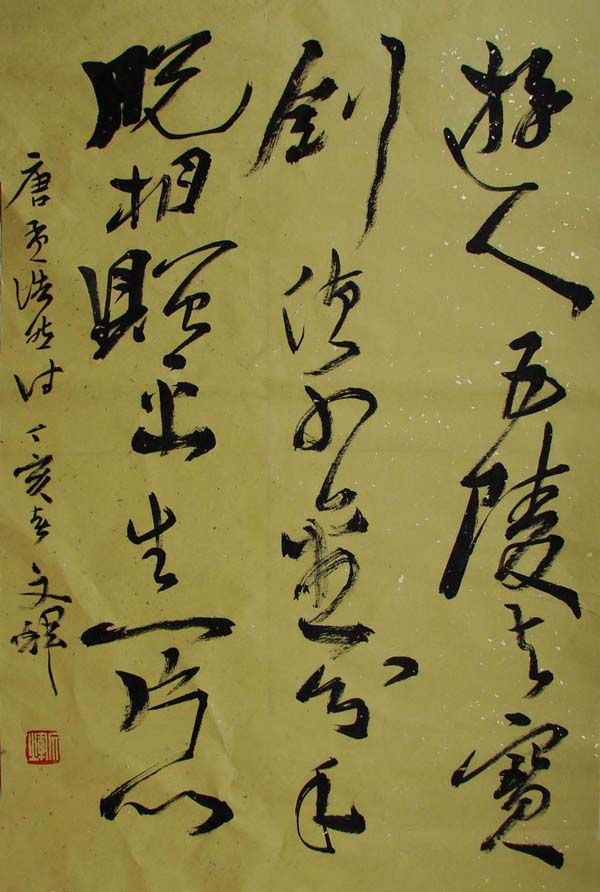 遊人五陵去寶
劍值千金分手
脱相贈平生一片心
唐孟浩然诗丁亥春文輝